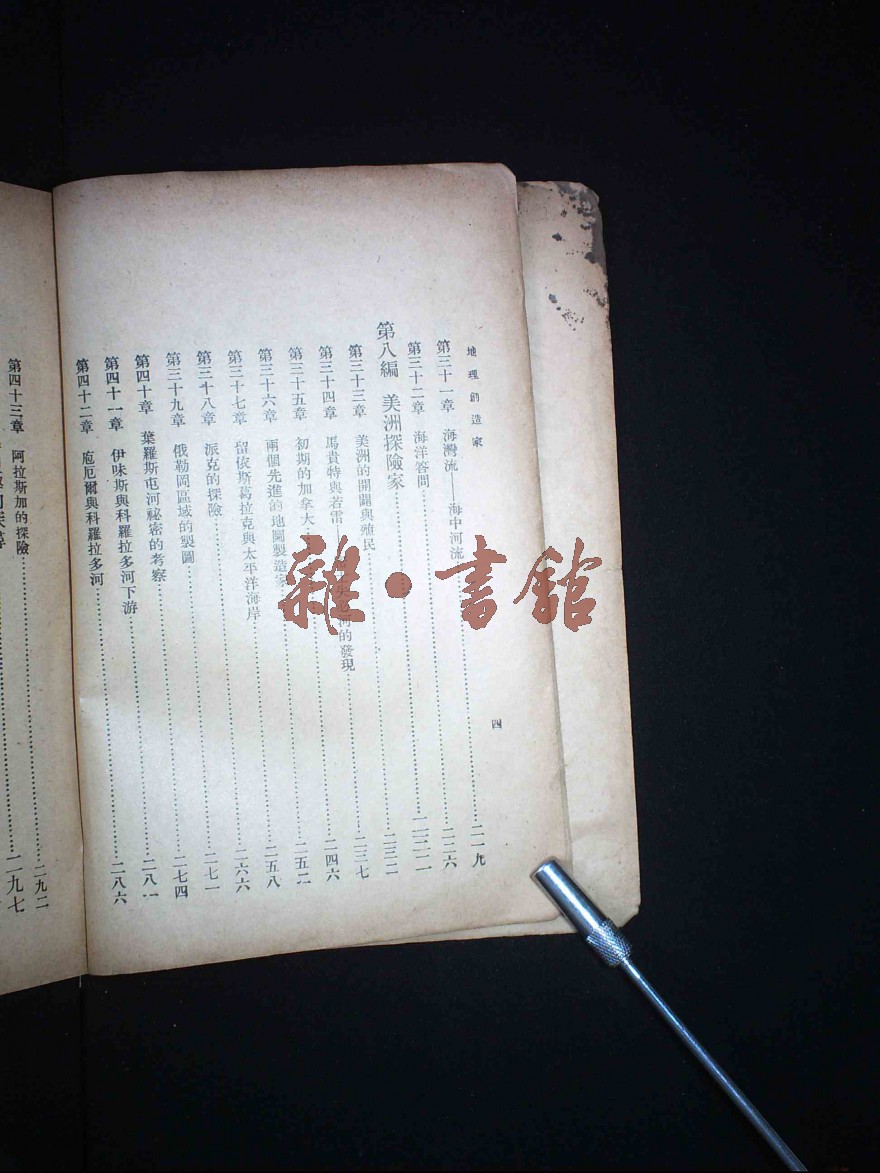 地理創造家
四
第三十一章　海灣流——海中河流……二一九
第三十二章　海洋答問……二二六
第八編　美洲探險家……二三二
第三十三章　美洲的開闢與殖民……二三二
第三十四章　馬貴特與若雷——河的發現……二三七
第三十五章　初期的加拿大……二四六
第三十六章　兩個先進的地圖製造家……二五二
第三十七章　留依斯葛拉克與太平洋海岸……二五八
第三十八章　派克的探險……二六六
第三十九章　俄勒岡區域的製圖……二七一
第四十章　葉羅斯屯河祕密的考察……二七四
第四十一章　伊味斯與科羅拉多河下游……二八一
第四十二章　庖厄爾與科羅拉多河……二八六
第四十三章　阿拉斯加的探險……二九二
二九七
雜·書館